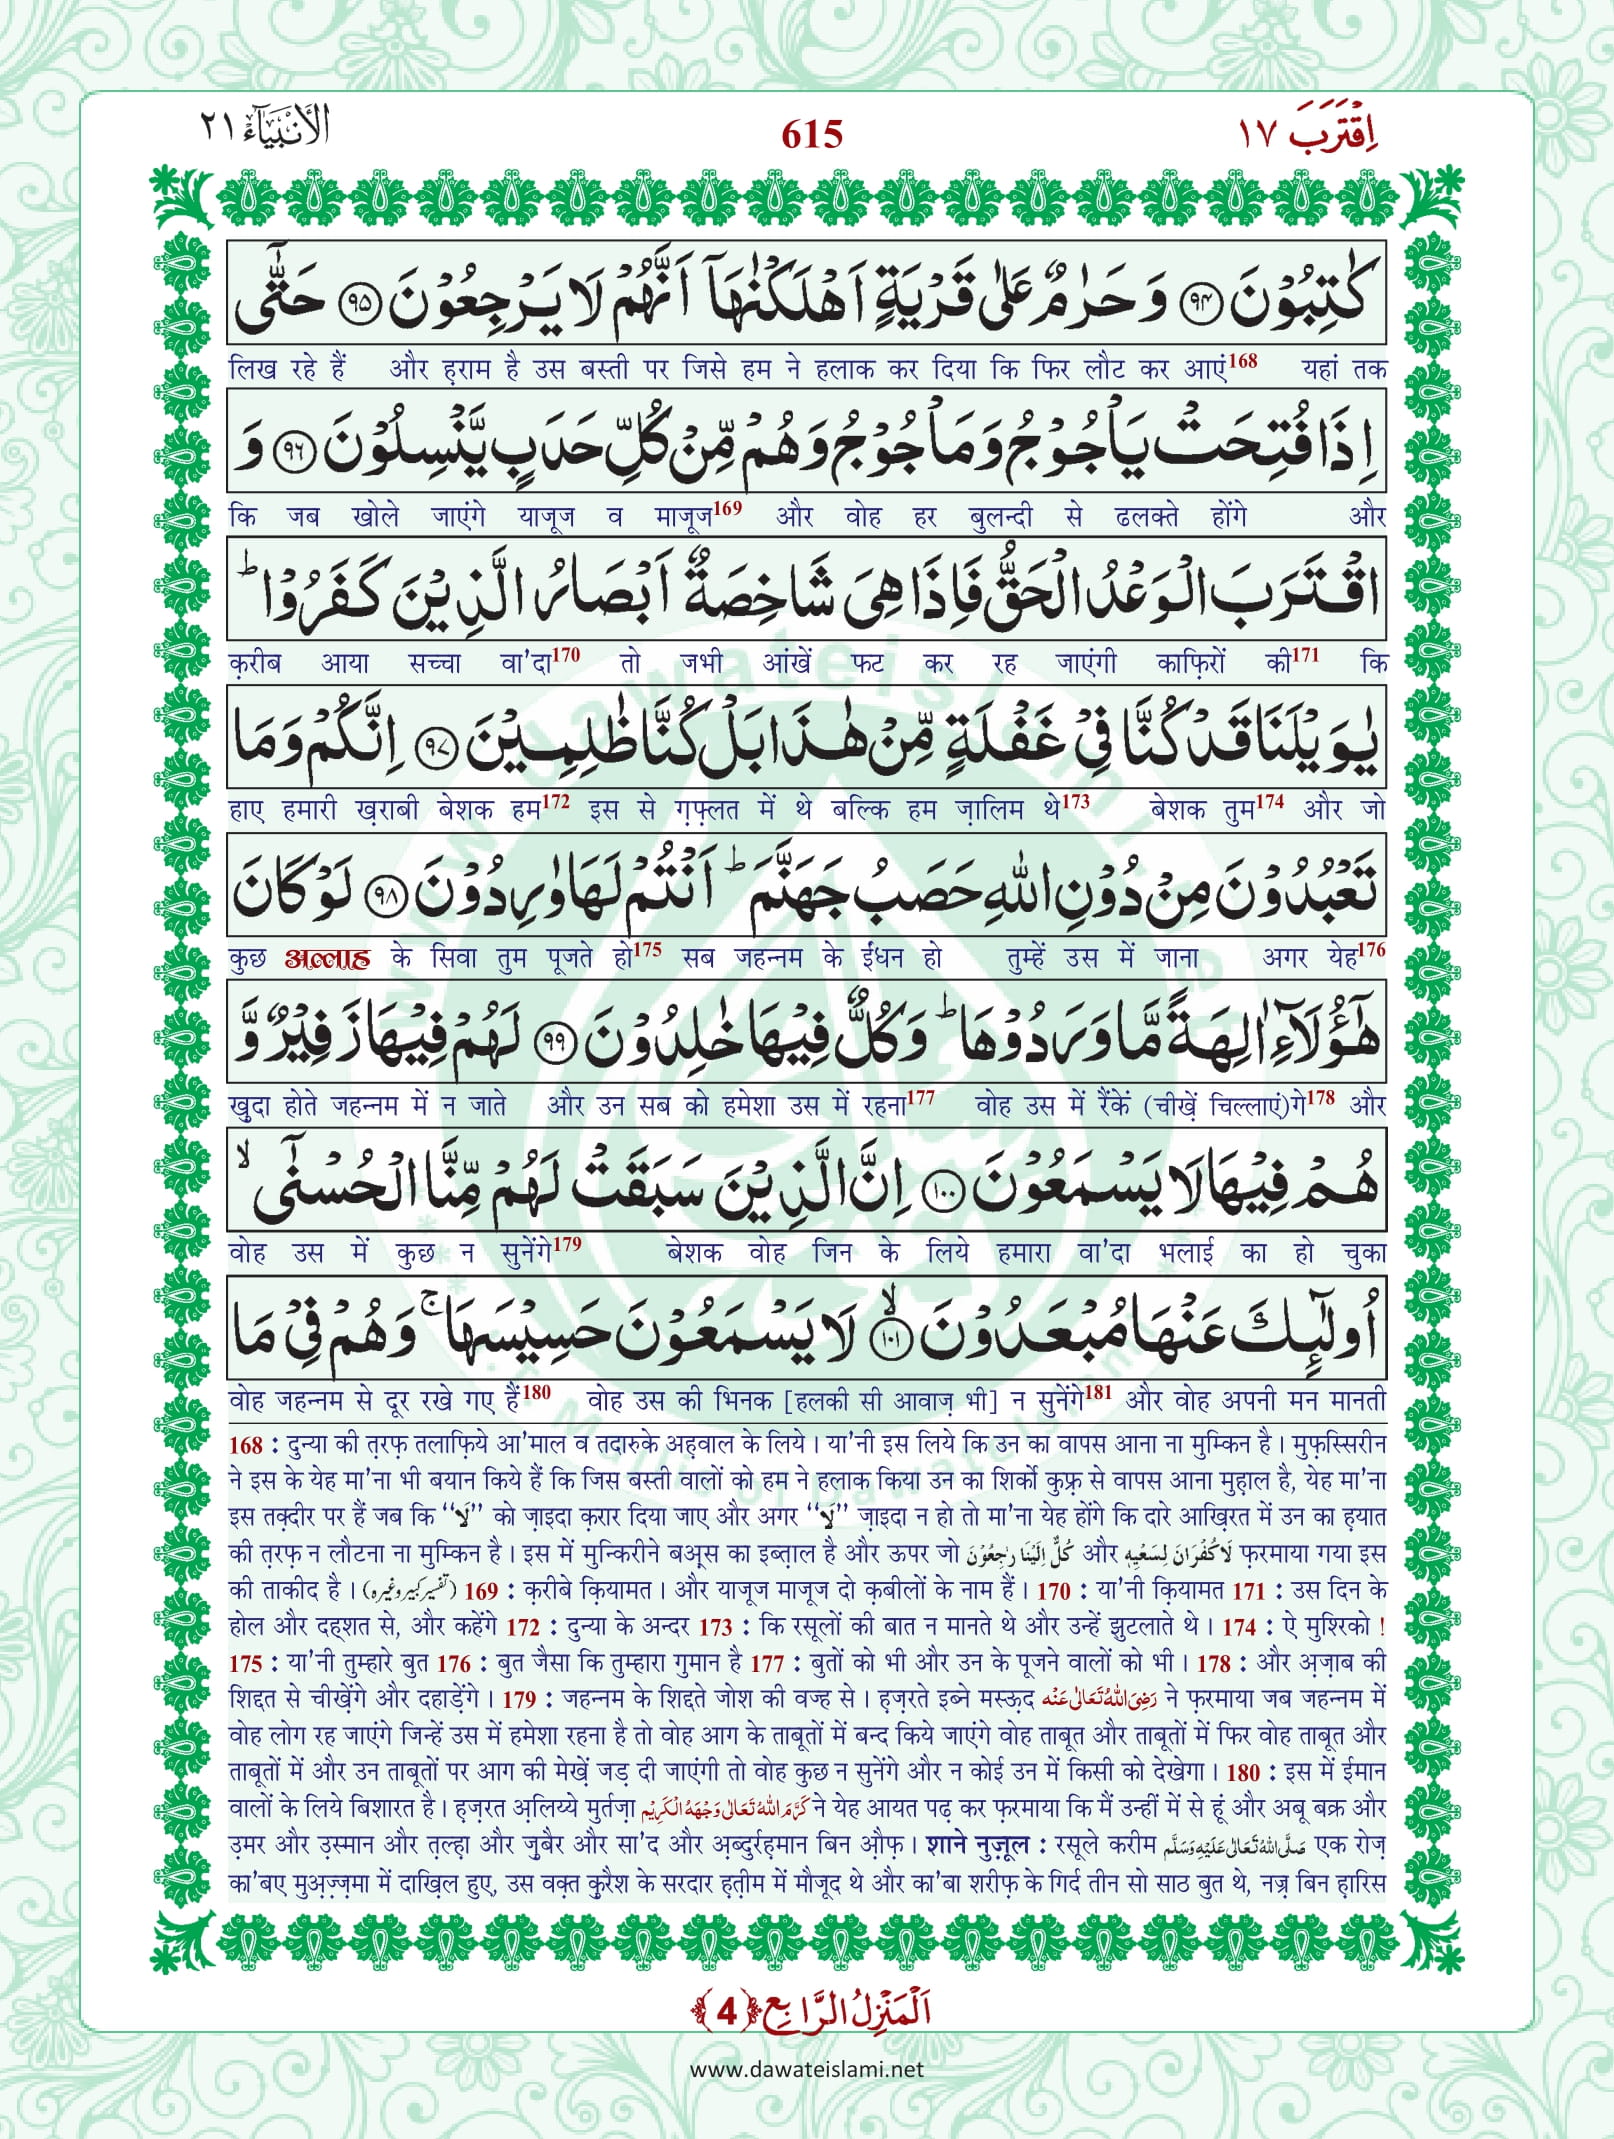 الأنبياء ٢١
615
اِقْتَرَبَ ١٧
كٰتِبُوْنَ ﴿٩٤﴾ وَ حَرٰمٌ عَلٰى قَرْیَةٍ اَهْلَكْنٰهَاۤ اَنَّهُمْ لَا یَرْجِعُوْنَ ﴿٩٥﴾ حَتّٰۤى
लिख रहे हैं और ह़राम है उस बस्ती पर जिसे हम ने हलाक कर दिया कि फिर लौट कर आएं168 यहां तक
اِذَا فُتِحَتْ یَاْجُوْجُ وَ مَاْجُوْجُ وَ هُمْ مِّنْ كُلِّ حَدَبٍ یَّنْسِلُوْنَ ﴿٩٦﴾ وَ
कि जब खोले जाएंगे याजूज व माजूज169 और वोह हर बुलन्दी से ढलक्ते होंगे और
اقْتَرَبَ الْوَعْدُ الْحَقُّ فَاِذَا هِیَ شَاخِصَةٌ اَبْصَارُ الَّذِیْنَ كَفَرُوْاؕ
क़रीब आया सच्चा वा'दा170 तो जभी आंखें फट कर रह जाएंगी काफ़िरों की171 कि
یٰوَیْلَنَا قَدْ كُنَّا فِیْ غَفْلَةٍ مِّنْ هٰذَا بَلْ كُنَّا ظٰلِمِیْنَ ﴿٩٧﴾ اِنَّكُمْ وَ مَا
हाए हमारी ख़राबी बेशक हम172 इस से ग़फ़्लत में थे बल्कि हम ज़ालिम थे173 बेशक तुम174 और जो
تَعْبُدُوْنَ مِنْ دُوْنِ اللّٰهِ حَصَبُ جَهَنَّمَؕ اَنْتُمْ لَهَا وٰرِدُوْنَ ﴿٩٨﴾ لَوْ كَانَ
कुछ अल्लाह के सिवा तुम पूजते हो175 सब जहन्नम के ईंधन हो तुम्हें उस में जाना अगर येह176
هٰۤؤُلَآءِ اٰلِهَةً مَّا وَرَدُوْهَاؕ وَ كُلٌّ فِیْهَا خٰلِدُوْنَ ﴿٩٩﴾ لَهُمْ فِیْهَا زَفِیْرٌ وَّ
ख़ुदा होते जहन्नम में न जाते और उन सब को हमेशा उस में रहना177 वोह उस में रैंकें (चीख़ें चिल्लाएं)गे178 और
هُمْ فِیْهَا لَا یَسْمَعُوْنَ ﴿١٠٠﴾ اِنَّ الَّذِیْنَ سَبَقَتْ لَهُمْ مِّنَّا الْحُسْنٰۤىۙ
वोह उस में कुछ न सुनेंगे179 बेशक वोह जिन के लिये हमारा वा'दा भलाई का हो चुका
اُولٰٓىِٕكَ عَنْهَا مُبْعَدُوْنَۙ ﴿١٠١﴾ لَا یَسْمَعُوْنَ حَسِیْسَهَاۚ وَ هُمْ فِیْ مَا
वोह जहन्नम से दूर रखे गए हैं180 वोह उस की भिनक [हलकी सी आवाज़ भी] न सुनेंगे181 और वोह अपनी मन मानती
168 : दुन्या की त़रफ़ तलाफ़िये आ'माल व तदारुके अह़वाल के लिये। या'नी इस लिये कि उन का वापस आना ना मुम्किन है। मुफ़स्सिरीन
ने इस के येह मा'ना भी बयान किये हैं कि जिस बस्ती वालों को हम ने हलाक किया उन का शिर्को कुफ़्र से वापस आना मुह़ाल है, येह मा'ना
इस तक़्दीर पर हैं जब कि ‘‘لَا’’ को ज़ाइदा क़रार दिया जाए और अगर ‘‘لَا’’ ज़ाइदा न हो तो मा'ना येह होंगे कि दारे आख़िरत में उन का ह़यात
की त़रफ़ न लौटना ना मुम्किन है। इस में मुन्किरीने बअ़्स का इब्त़ाल है और ऊपर जो كُلٌّ اِلَیْنَا رٰجِعُوْنَ और لَا كُفْرَانَ لِسَعْیِهٖ फ़रमाया गया इस
की ताकीद है। (تفسیر کبیر وغیرہ) 169 : क़रीबे क़ियामत। और याजूज माजूज दो क़बीलों के नाम हैं। 170 : या'नी क़ियामत 171 : उस दिन के
होल और दह्शत से, और कहेंगे 172 : दुन्या के अन्दर 173 : कि रसूलों की बात न मानते थे और उन्हें झुटलाते थे। 174 : ऐ मुश्रिको !
175 : या'नी तुम्हारे बुत 176 : बुत जैसा कि तुम्हारा गुमान है 177 : बुतों को भी और उन के पूजने वालों को भी। 178 : और अ़ज़ाब की
शिद्दत से चीख़ेंगे और दहाड़ेंगे। 179 : जहन्नम के शिद्दते जोश की वज्ह से। ह़ज़रते इब्ने मस्ऊ़द رَضِیَ اللّٰهُ تَعَالٰی عَنْه ने फ़रमाया जब जहन्नम में
वोह लोग रह जाएंगे जिन्हें उस में हमेशा रहना है तो वोह आग के ताबूतों में बन्द किये जाएंगे वोह ताबूत और ताबूतों में फिर वोह ताबूत और
ताबूतों में और उन ताबूतों पर आग की मेख़ें जड़ दी जाएंगी तो वोह कुछ न सुनेंगे और न कोई उन में किसी को देखेगा। 180 : इस में ईमान
वालों के लिये बिशारत है। ह़ज़रत अ़लिय्ये मुर्तज़ा كَرَّمَ اللّٰهُ تَعَالٰی وَجْهَهُ الْكَرِیْم ने येह आयत पढ़ कर फ़रमाया कि मैं उन्हीं में से हूं और अबू बक्र और
उ़मर और उ़स्मान और त़ल्ह़ा और ज़ुबैर और सा'द और अ़ब्दुर्रह़मान बिन औ़फ़। शाने नुज़ूल : रसूले करीम صَلَّی اللّٰهُ تَعَالٰی عَلَیْهِ وَسَلَّم एक रोज़
का'बए मुअ़ज़्ज़मा में दाख़िल हुए, उस वक़्त क़ुरैश के सरदार ह़त़ीम में मौजूद थे और का'बा शरीफ़ के गिर्द तीन सो साठ बुत थे, नज़्र बिन ह़ारिस
اَلْمَنْزِلُ الرَّابِع ﴿4﴾
www.dawateislami.net